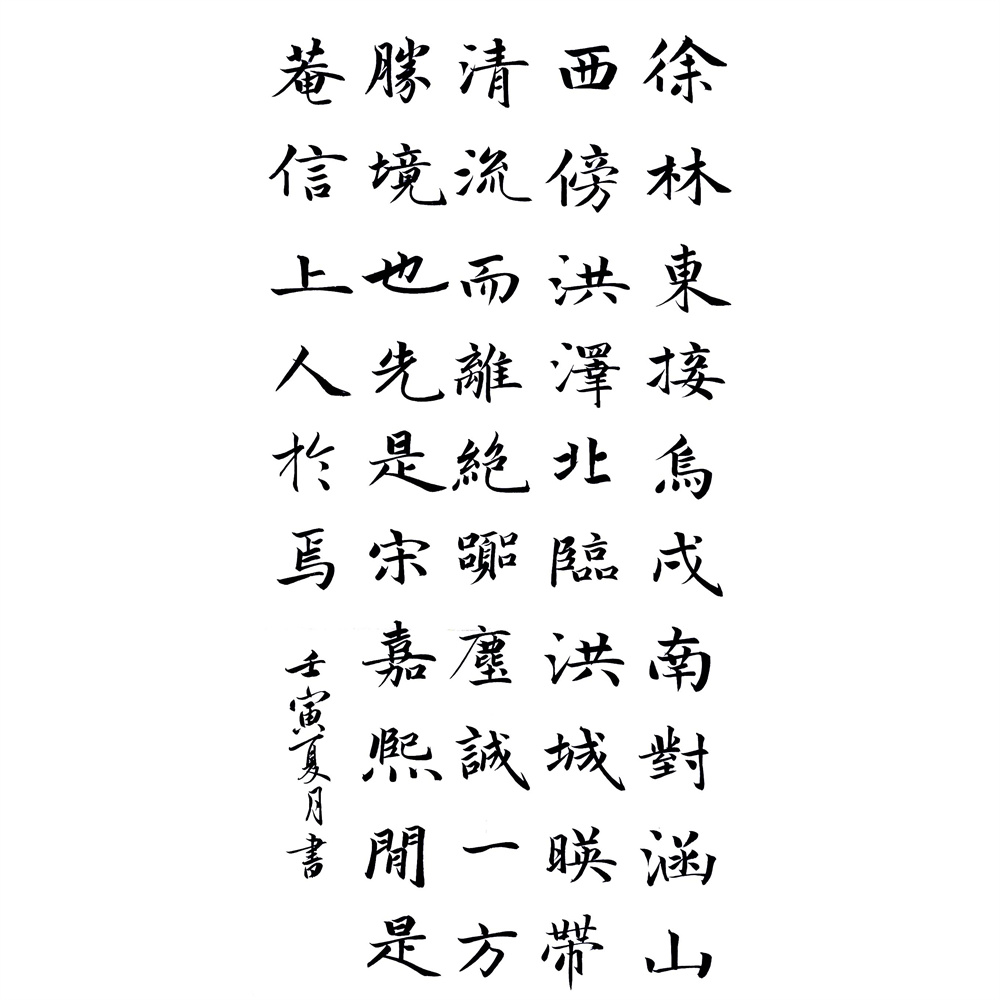 徐林東接烏戍南對涵山
西傍洪澤北臨洪城暎帶
清流而離絕囂塵誠一方
勝境也先是宋嘉熙閒是
菴信上人於焉
壬寅夏月書